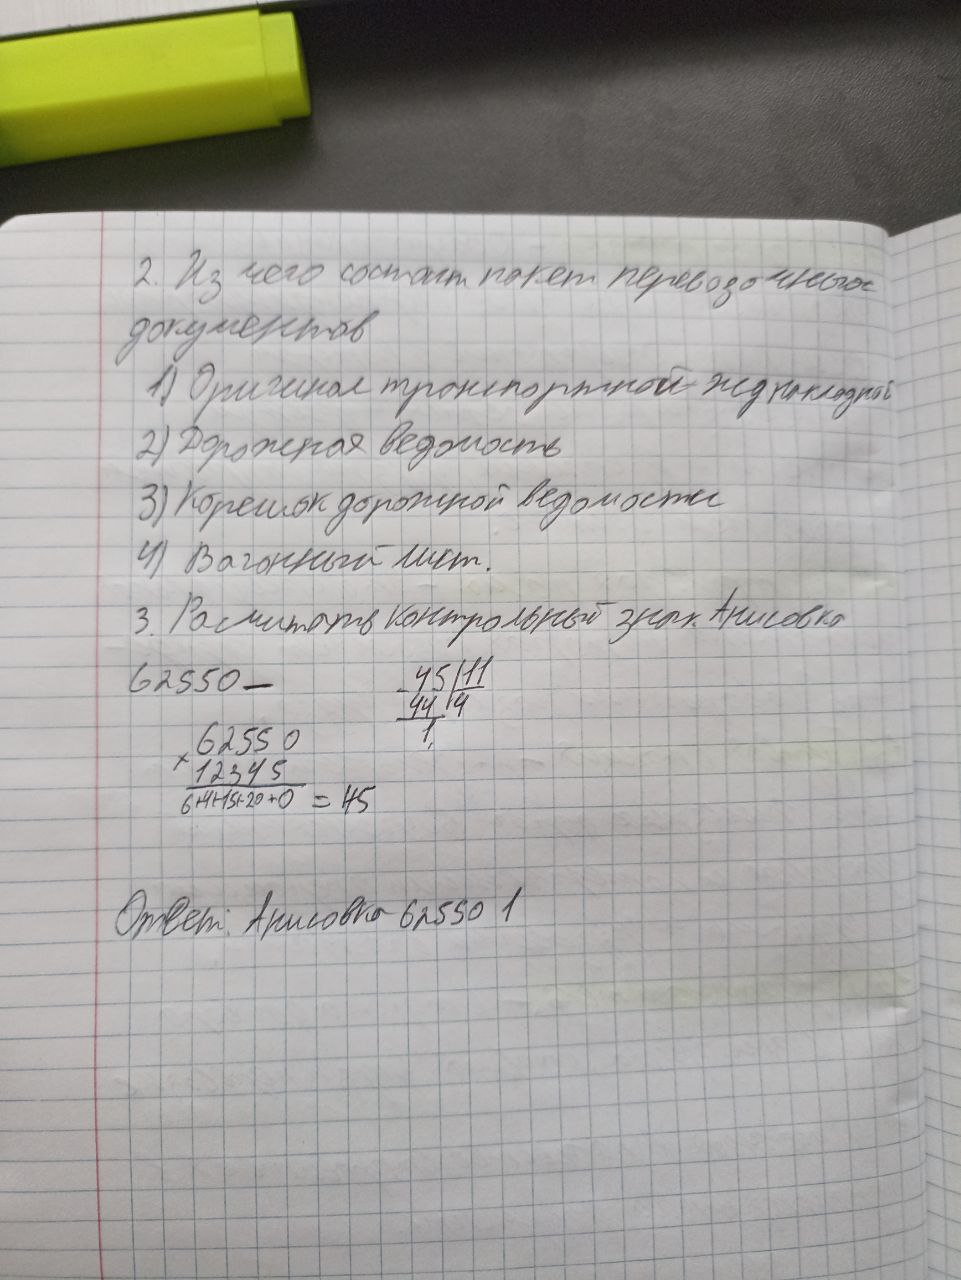 2. Из чего состоит пакет перевозочных
документов
1) Оригинал транспортной жд накладной
2) Дорожная ведомость
3) Корешок дорожной ведомости
4) Вагонный лист.
3. Расчитать контрольный знак Анисовка
62550 —
45 | 11
44 | 4
1
62550
× 12345
6+4+15+20+0 = 45
Ответ: Анисовка 62550 1